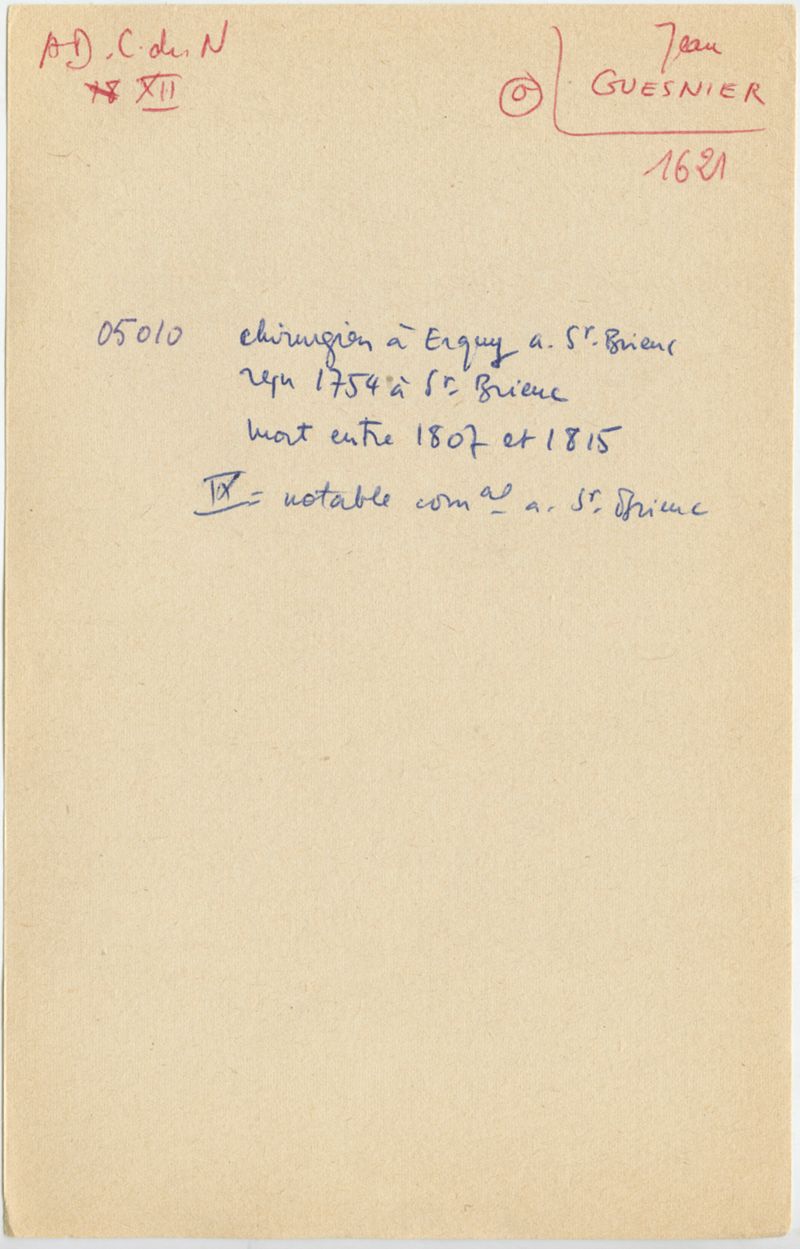 AD. C. du N
XII
Jean
GUESNIER
1621
05010 chirurgien à Erquy a. St. Brieuc
reçu 1754 à St. Brieuc
mort entre 1807 et 1815
IX = notable comal a. St. Brieuc